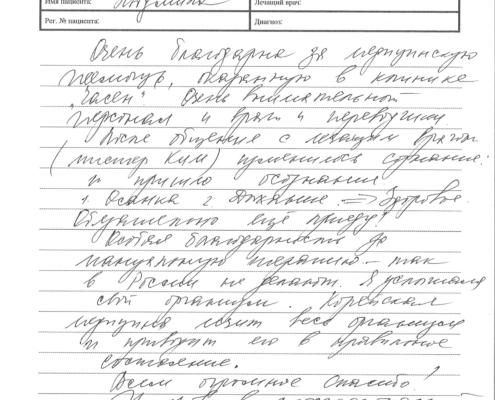 Имя пациента: Людмила
Лечащий врач:
Рег. № пациента:
Диагноз:
Очень благодарна за медицинскую
помощь, оказанную в клинике
"Часен". Очень внимательный
персонал и врачи и переводчики
После общения с лечащим врачом
(мистер Ким) изменилось сознание:
и пришло осознание
1. Осанка 2. Дыхание => Здоровье.
Обязательно ещё приеду!
Особая благодарность за
мануальную терапию - так
в России не делают. Я услышала
свой организм. Корейская
медицина лечит весь организм
и приводит его в правильное
состояние.
Всем огромное спасибо!